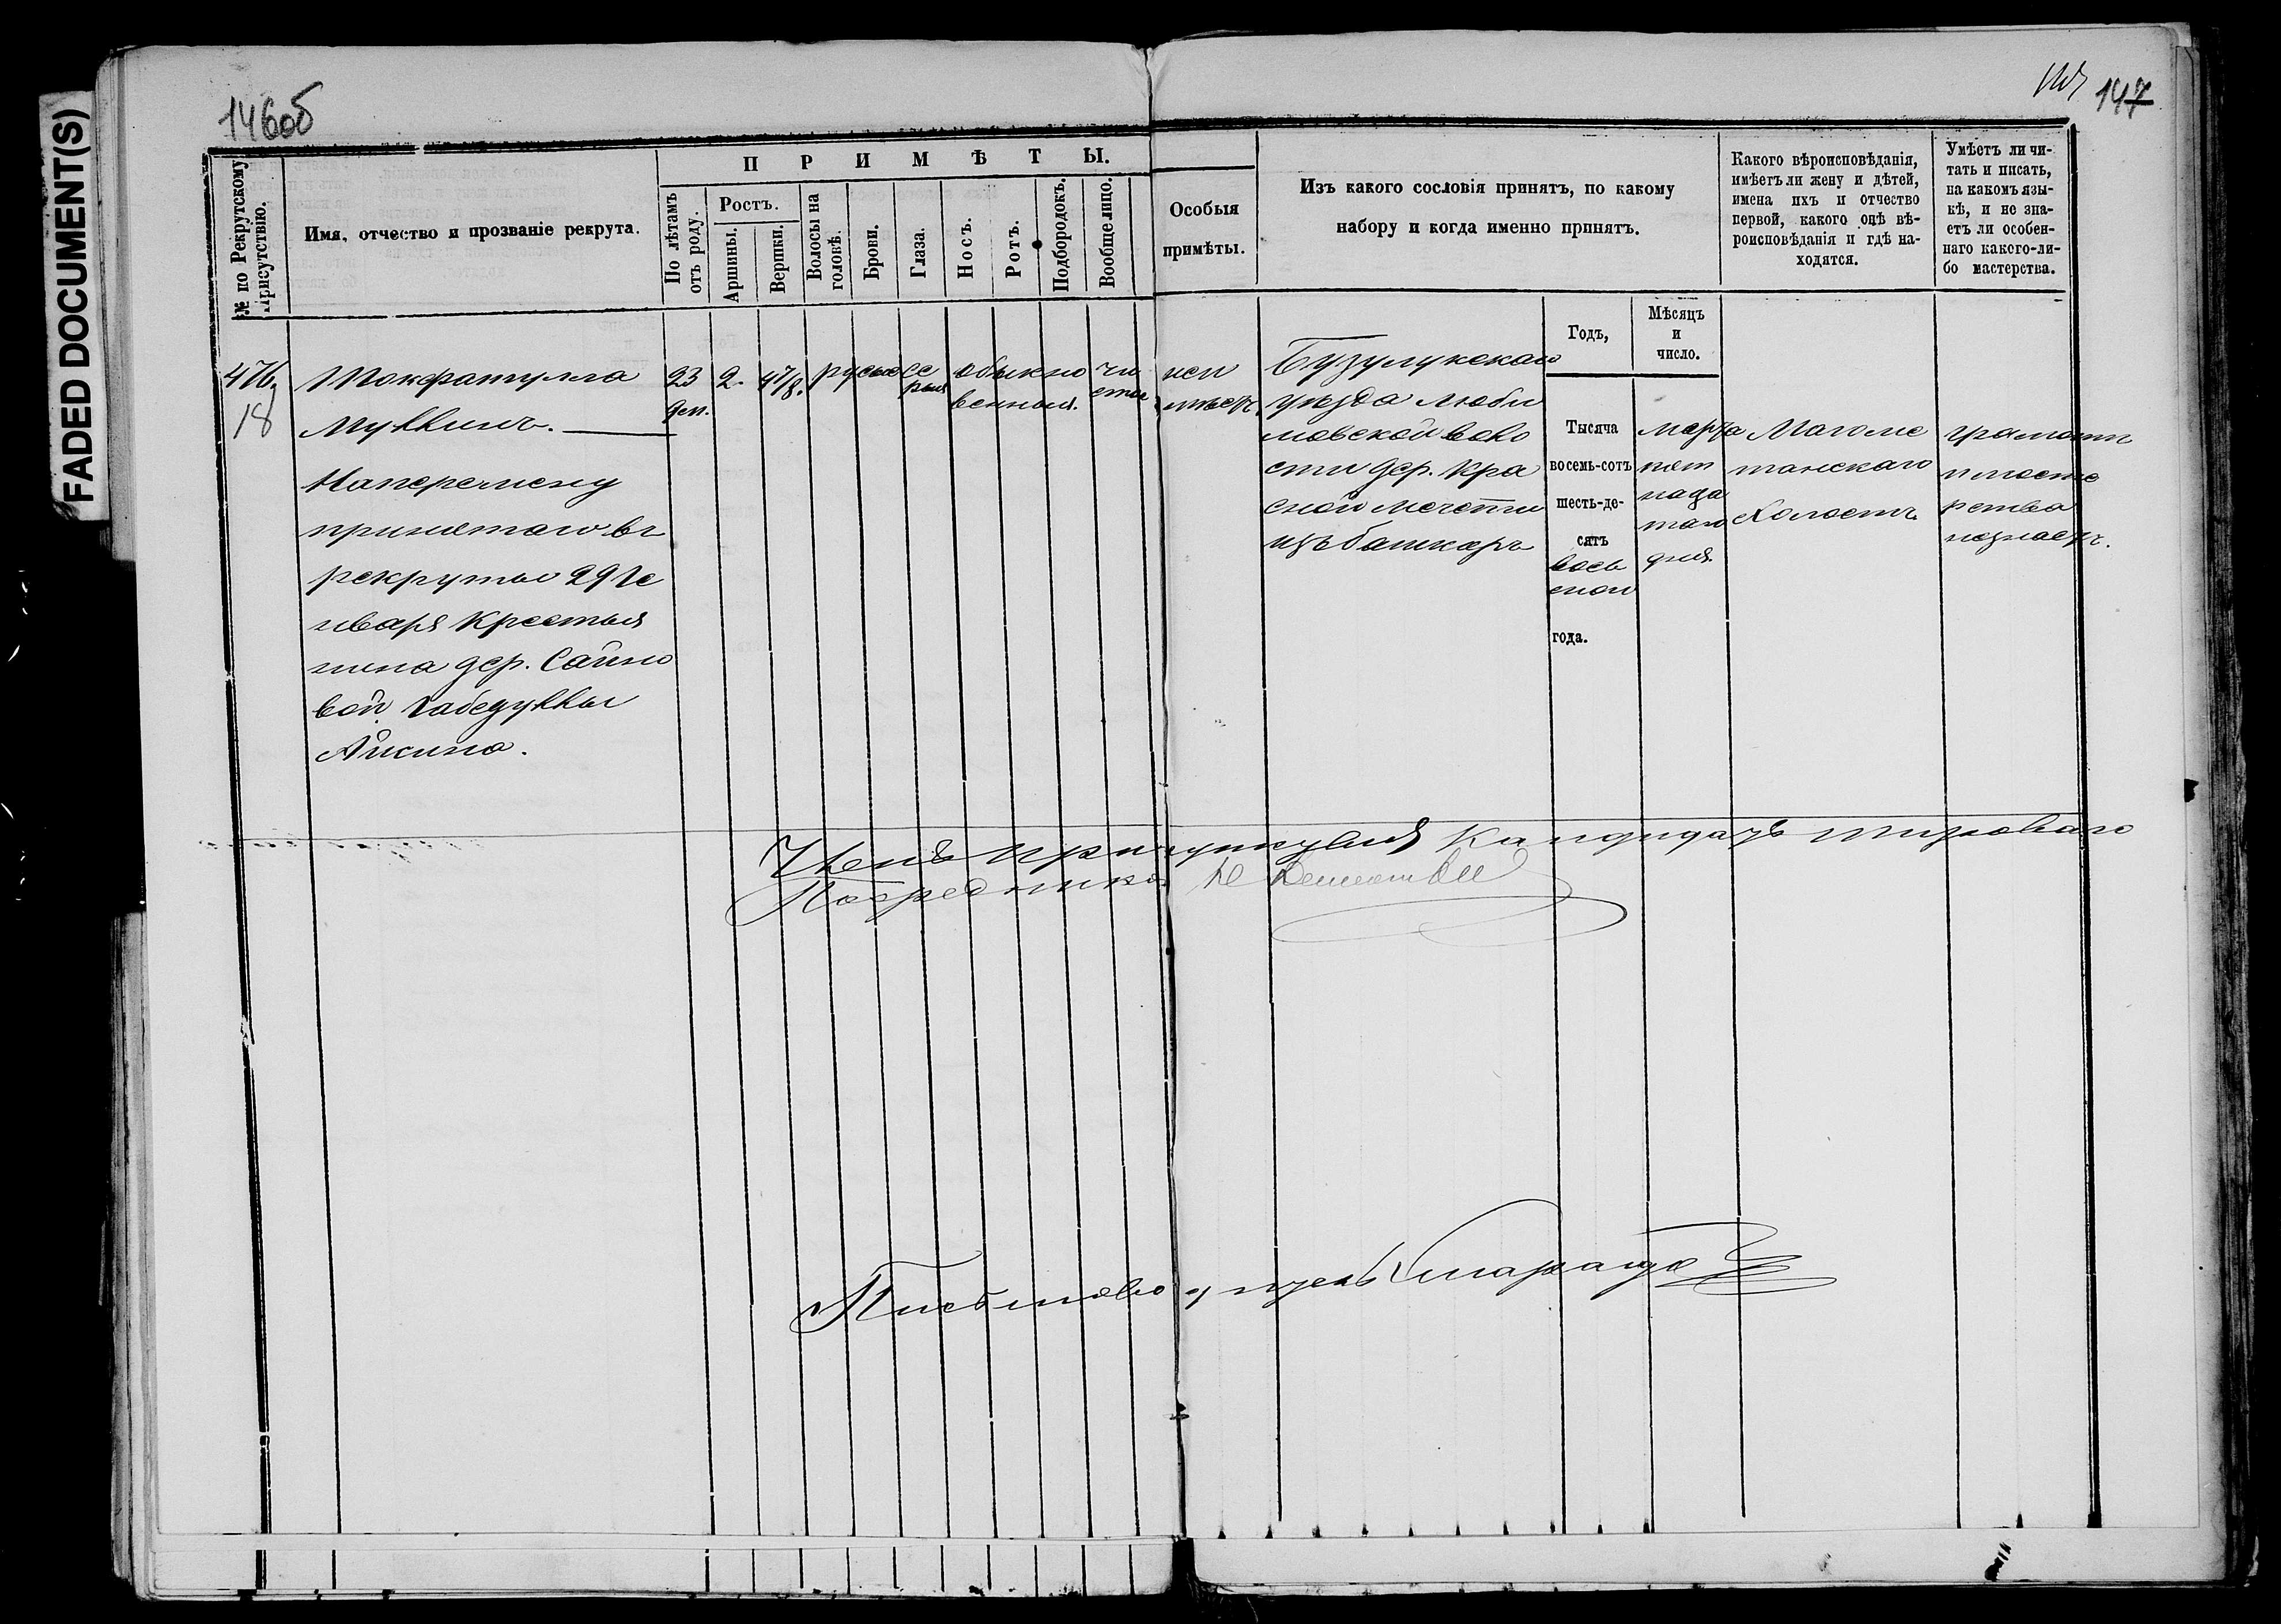 FADED DOCUMENT(S)
146об
147
№ по Рекрутскому
Присутствію.
Имя, отчество и прозваніе рекрута.
ПРИМѢТЫ.
По лѣтамъ
отъ роду.
Ростъ.
Аршины.
Вершки.
Волосы на
головѣ.
Брови.
Глаза.
Носъ.
Ротъ.
Подбородокъ.
Вообще лицо.
Особыя
примѣты.
Изъ какого сословія принятъ, по какому
набору и когда именно принятъ.
Какого вѣроисповѣданія,
имѣетъ ли жену и дѣтей,
имена ихъ и отчество
первой, какого онѣ вѣ-
роисповѣданія и гдѣ на-
ходятся.
Умѣетъ ли чи-
тать и писать,
на какомъ язы-
кѣ, и не зна-
етъ ли особен-
наго какого-ли-
бо мастерства.
Годъ,
Мѣсяцъ
и
число.
476
18
Мукминъ.
Наперемену
принятаго въ
рекруты 29 Ге
нваря крестья
нина дер. Сайно
вой
23
2.
4 7/8.
русые
се
рыя
обыкно
венныя.
чи
стое
неи
мѣетъ.
Бузулукскаго
уѣзда Люби
мовской воло
сти дер. Кра
сной мечети
изъ башкиръ
Тысяча
восемь-сотъ
шесть-де-
сятъ
вось
мой
года.
Марта
пят
надца
таго
дня.
Магоме
танскаго
Холостъ.
грамоты
и масте
рства
незнаетъ.
Членъ Присутствія Кандидатъ Мироваго
Посредника